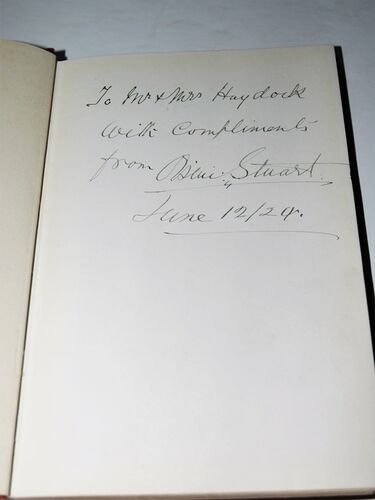 To Mr & Mrs Haydock
with Compliments
from Stuart.
June 12/29.